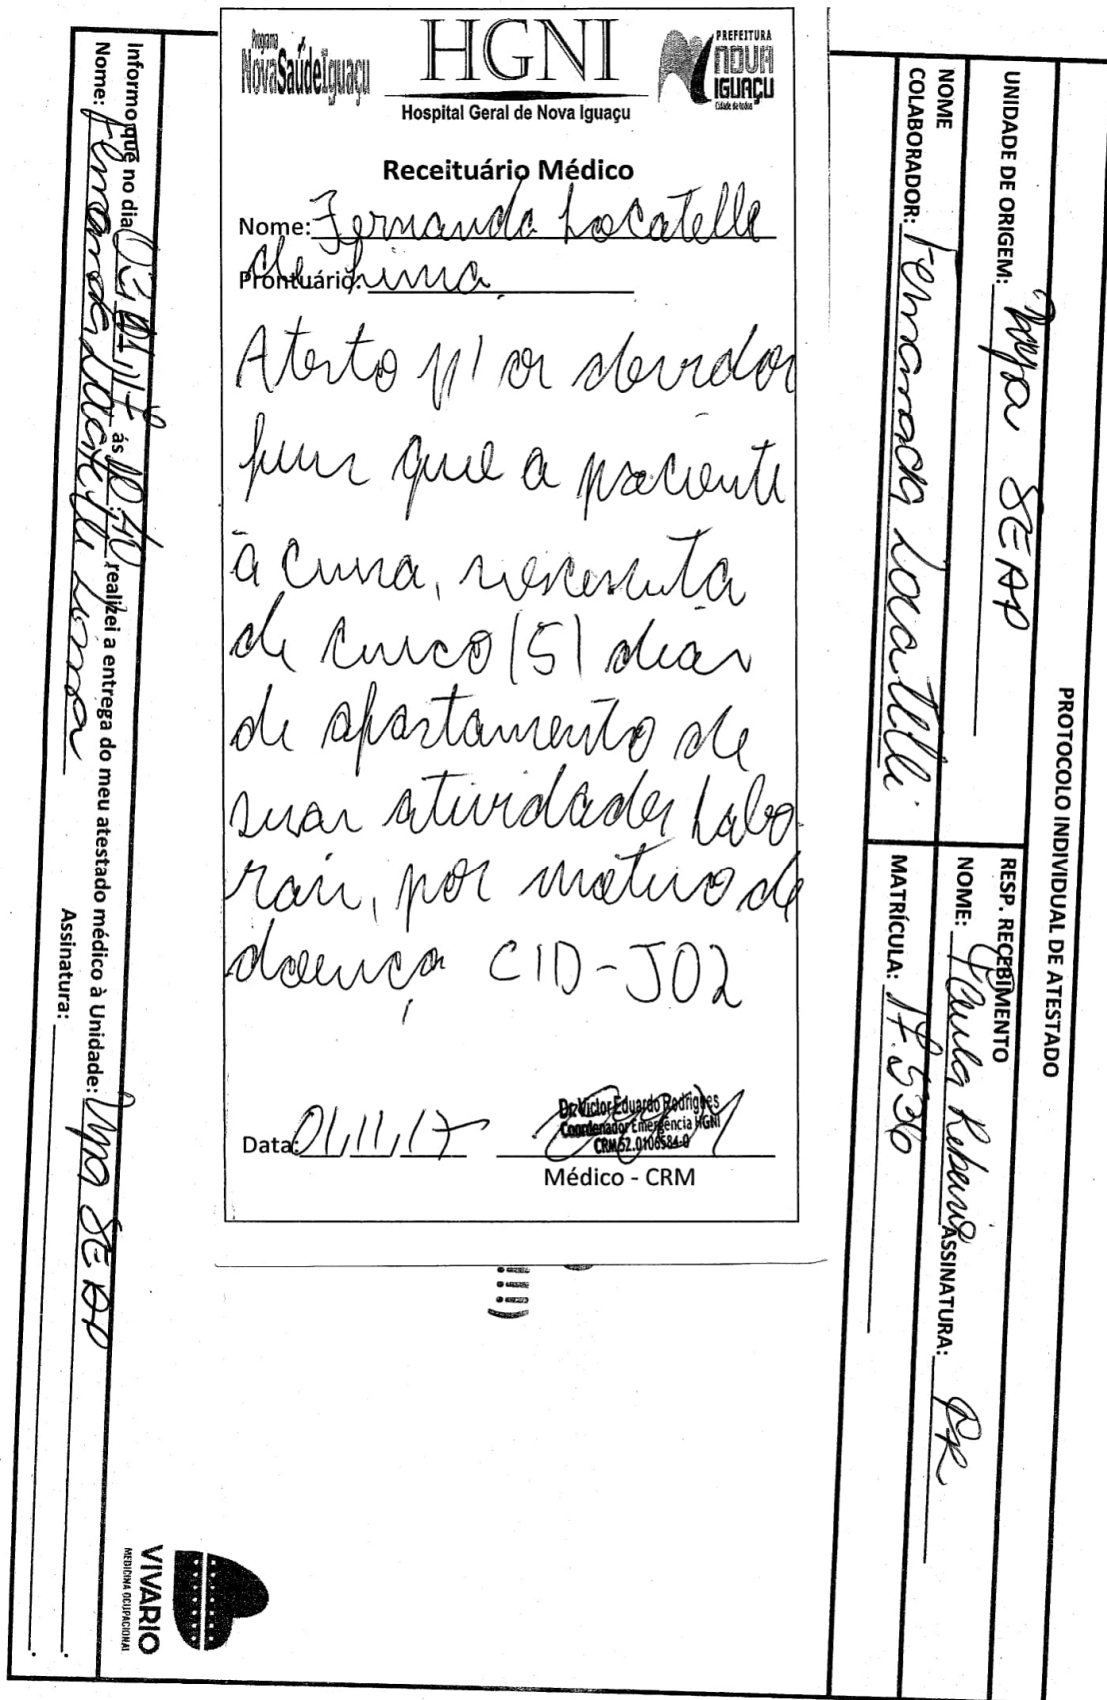 Programa
NovaSaúdeIguaçu
HGNI
Hospital Geral de Nova Iguaçu
PREFEITURA
NOVA
IGUAÇU
Cidade de todos
Receituário Médico
Nome: Fernanda Locatelle
de Lima
Prontuário:
Atesto p/ os devidos
fins que a paciente
à cima, necessita
de cinco (5) dias
de afastamento de
suas atividades Labo-
rais, por motivo de
doença CID-J02
Data: 01/11/17
Dr. Victor Eduardo Rodrigues
Coordenador Emergência HGNI
CRM 52.0106584-0
Médico - CRM
PROTOCOLO INDIVIDUAL DE ATESTADO
UNIDADE DE ORIGEM: Upa SEAP
RESP. RECEBIMENTO
NOME: Paula Ribeiro ASSINATURA: PR
NOME
COLABORADOR: Fernanda Locatelli
MATRÍCULA: 17.536
Informo que no dia 03/ /17 ás realizei a entrega do meu atestado médico à Unidade: Upa SEAP
Nome: Fernanda Locatelli Lima Assinatura:
VIVARIO
MEDICINA OCUPACIONAL